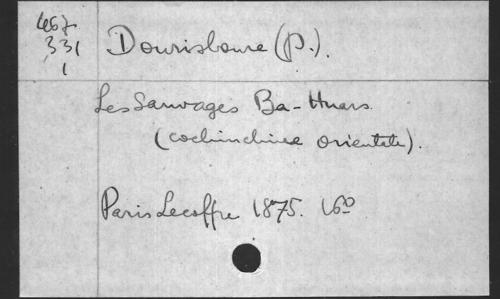 467
331
1
Dourisboure (P.).
Les Sauvages Ba-Hnars
(cochinchine orientale).
Paris Lecoffre 1875. 16º